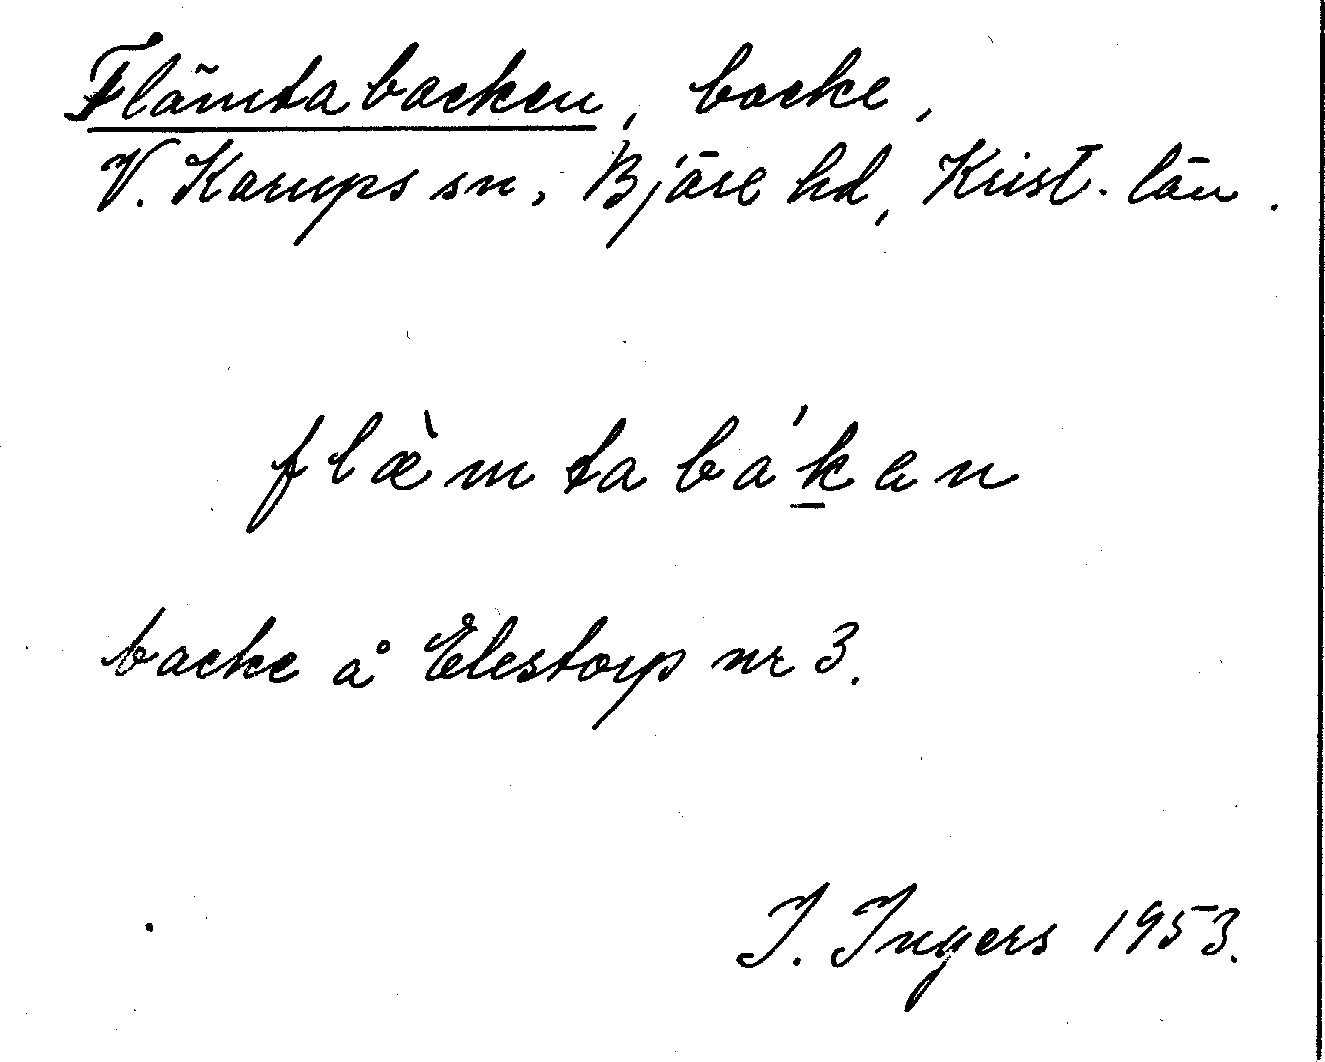 Flämtabacken, backe,
V. Karups sn, Bjäre hd, Krist. län.
flæ̀mtabá̱kan
backe å Elestorp nr 3.
I. Ingers 1953.